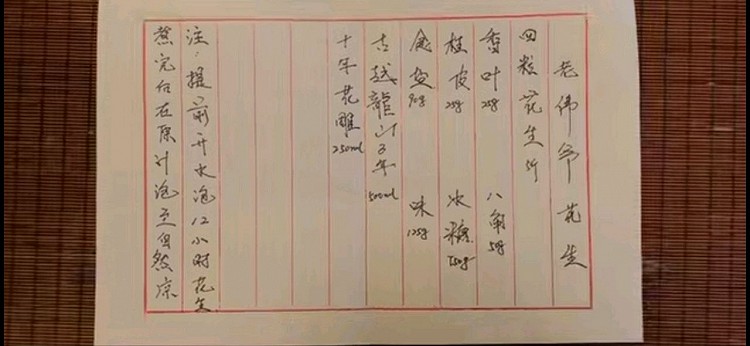 老佛爷花生
四粒花生5斤
香叶2g 八角5g
桂皮2g 冰糖750g
食盐90g 味125g
古越龍山3年500ml
十年花雕250ml
注：提前开水泡12小时花生
煮完后在原汁泡至自然凉